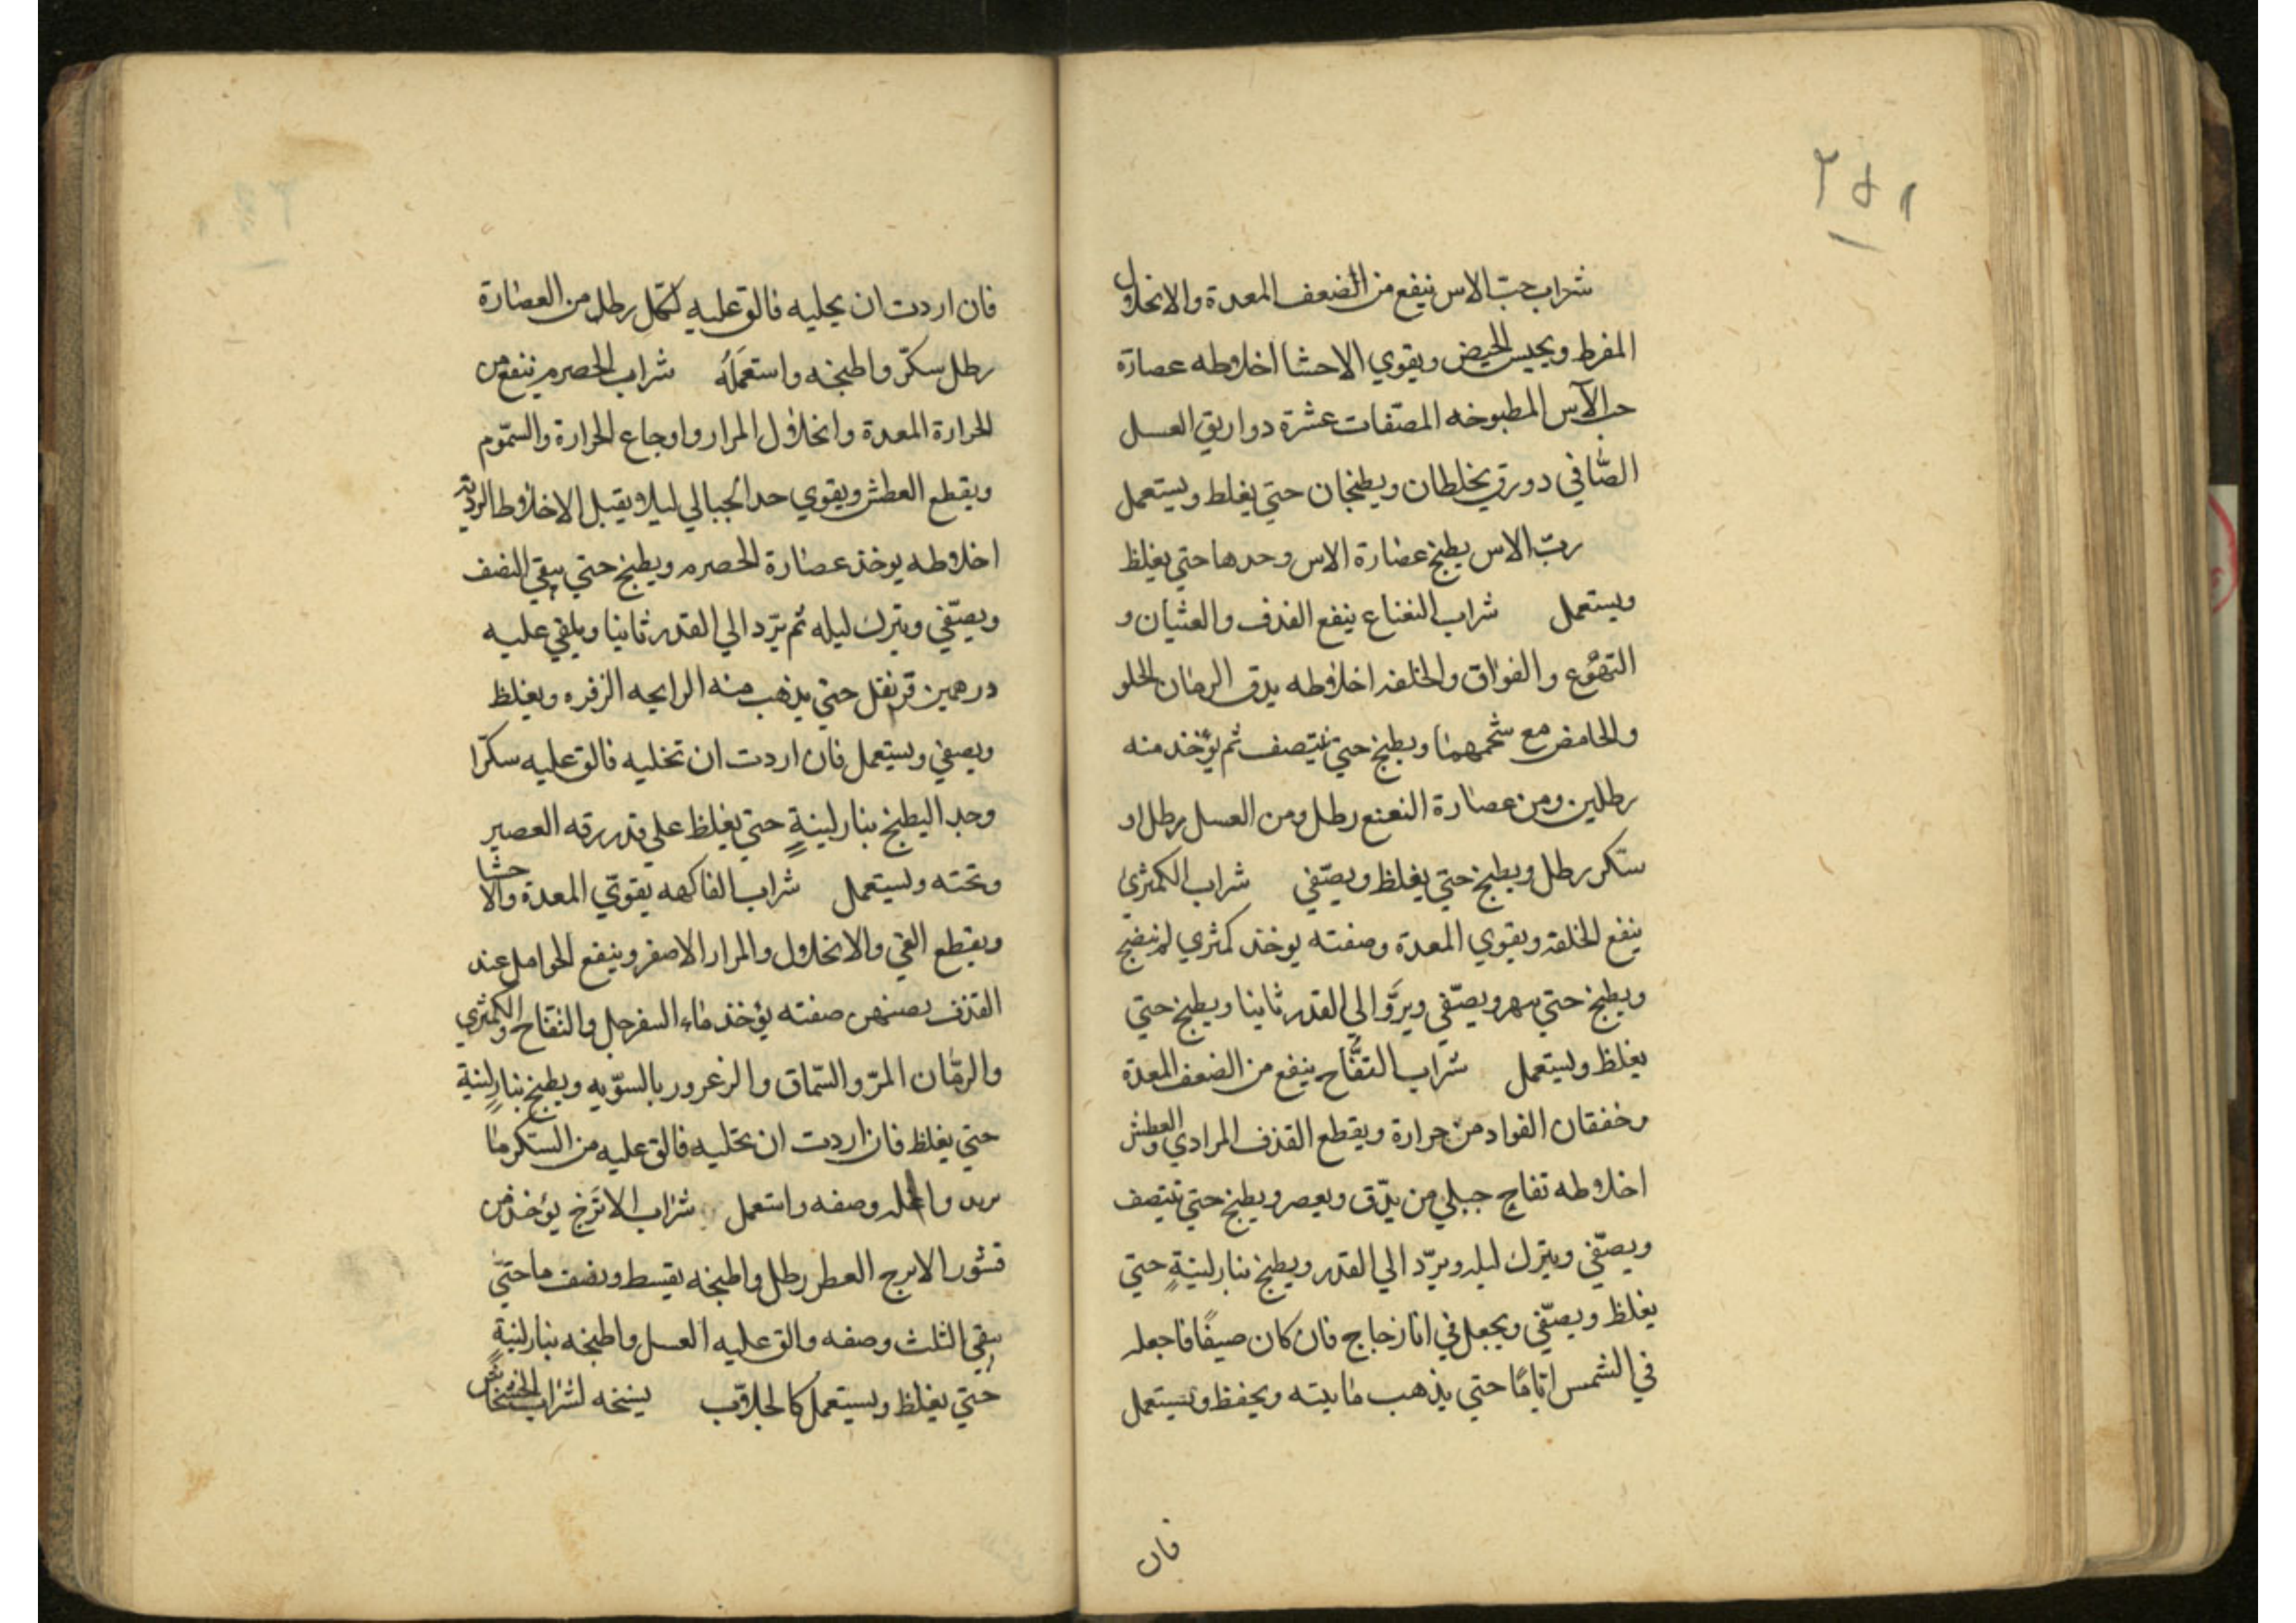 ٢٥١
شراب حبّ الاس ينفع من الضعف المعدة والانحلال
المفرط ويحبس الحيض ويقوي الاحشا اخلاطه عصارة
حب الآس المطبوخه المصفّات عشرة دواريق العسل
الصّافي دورق يخلطان ويطبخان حتي يغلط ويستعمل
ربّ الاس يطبخ عصارة الاس وحدها حتي يغلظ
ويستعمل شراب النعناع ينفع القذف والغثيان و
التهوّع والفواق والخلفه اخلاطه يدق الرمان الحلو
والحامض مع شحمهما ويطبخ حتي ينتصف ثم يؤخذ منه
رطلين ومن عصارة النعنع رطل ومن العسل رطل او
سكر رطل ويطبخ حتي يغلظ ويصفّي شراب الكمثري
ينفع الخلفة ويقوي المعدة وصفته يوخذ كمثري لم ينضج
ويطبخ حتي ويصفّي ويردّ الي القدر ثانيا ويطبخ حتي
يغلظ ويستعمل شراب التفّاح ينفع من الضعف المعدة
وخفقان الفواد من حرارة ويقطع القذف المراري والعطش
اخلاطه تفاح جبلي من يدّق ويعصر ويطبخ حتي ينتصف
ويصفّي ويترك ليله ويردّ الي القدر ويطبخ بنار لينةٍ حتي
يغلظ ويصفّي ويجعل في انا زجاج فان كان صيفًا فاجعله
في الشمس ايامًا حتي يذهب مايته ويحفظ ويستعمل
فان
فان اردت ان يحليه فالق عليه لكل رطل من العصارة
رطل سكّر واطبخه واستعمله شراب الحصرم ينفع من
الحرارة المعدة وانحلال المرار واوجاع الحرارة والسموم
ويقطع العطش ويقوي الحبالي ليلا يقبل الاخلاط الرديّه
اخلاطه يوخذ عصارة الحصرم ويطبخ حتي يبقي النصف
ويصفّي ويترك ليله ثم يردّ الي القدر ثانيا ويلقي عليه
درهمين قرنفل حتي يذهب منه الرايحه الزفره ويغلظ
ويصفي ويستعمل فان اردت ان تحليه فالق عليه سكرّا
وجد اليطبخ بنار لينةٍ حتي يغلظ علي قدر رقه العصير
وتحته ويستعمل شراب الفاكهه يقوّي المعدة والاحشا
ويقطع القي والانحلال والمرار الاصفر وينفع الحوامل عند
القذف صفته يؤخذ ماء السفرجل والتفاح والكمثري
والرمّان المرّ والسمّاق والزعرور بالسوّيه ويطبخ بنارٍ لينة
حتي يغلظ فان اردت ان تحليه فالق عليه من السكر ما
تريد وصفه واستعمل شراب الاترّج يؤخذ من
قشور الاترج العطر رطل واطبخه بقسط ونصف ما حتّي
يبقي الثلث وصفه والق عليه العسل واطبخه بنار لينةٍ
حتي يغلظ ويستعمل كالجلاّب نسخه لشراب الخشخاش